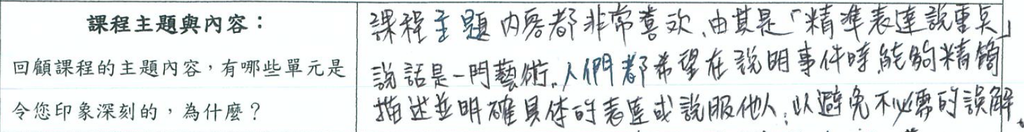 課程主題與內容：
回顧課程的主題內容，有哪些單元是
令您印象深刻的，為什麼？
課程主題內容都非常喜欢，由其是「精準表達說重奌」
說話是一門藝術。人們都希望在說明事件時能夠精簡
描述並明確具体的表達或說服他人，以避免不必要的誤解。